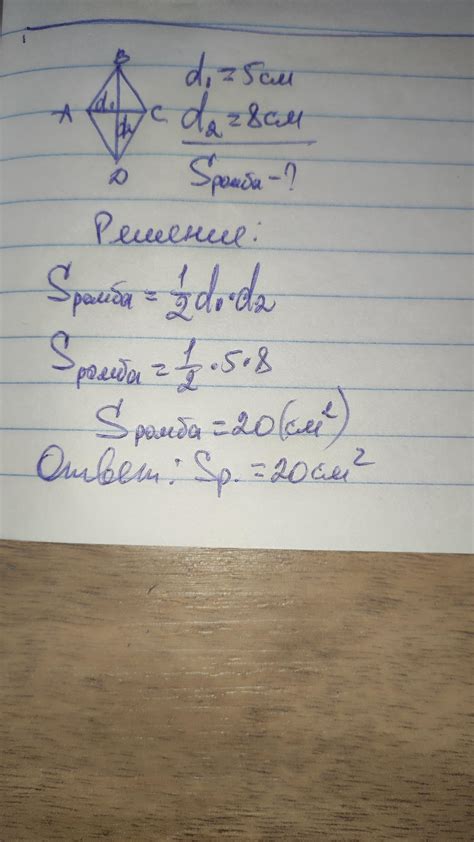 B
d₁ = 5см
A d₁ C d₂ = 8см
d₂
D Sромба - ?
Решение:
Sромба = 1/2 d₁ · d₂
Sромба = 1/2 · 5 · 8
Sромба = 20 (см²)
Ответ: Sр. = 20 см²